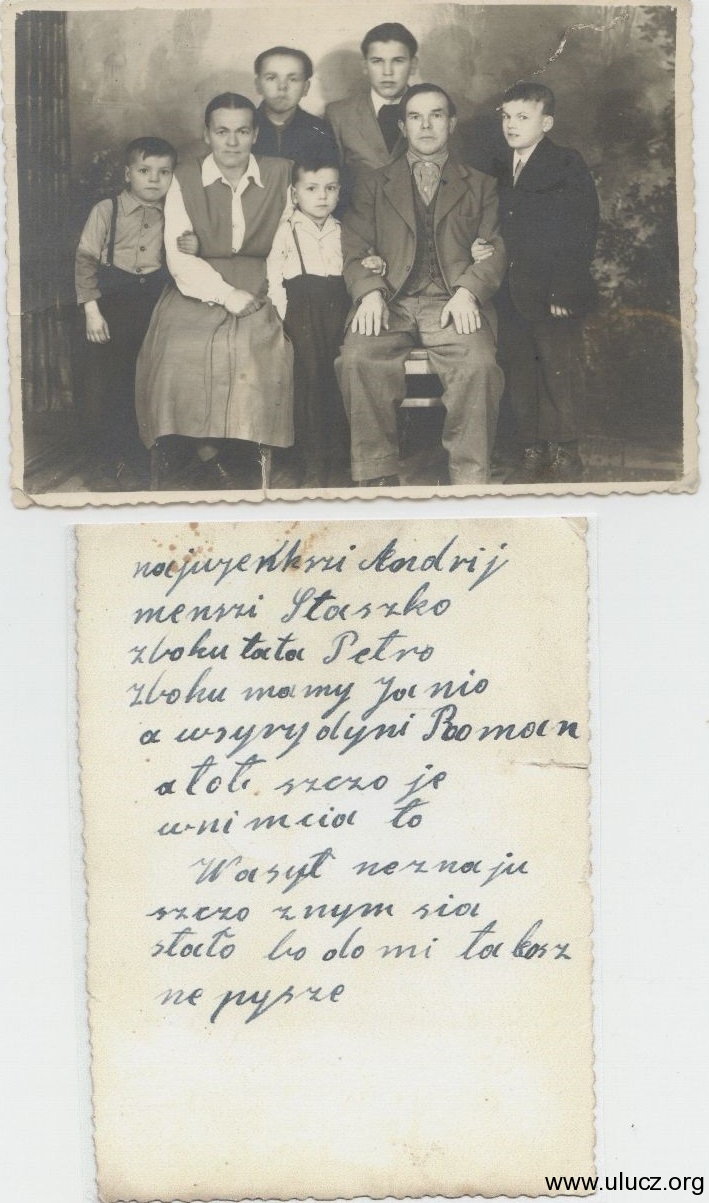 najwyenkszi Andrij
menszi Staszko
zboku tata Petro
zboku mamy Janio
a wsyrydyni Roman
a tot szczo je
wnimcia to
Wasyl neznaju
szczo znym sia
stało bo do mi takosz
ne pysze
www.ulucz.org